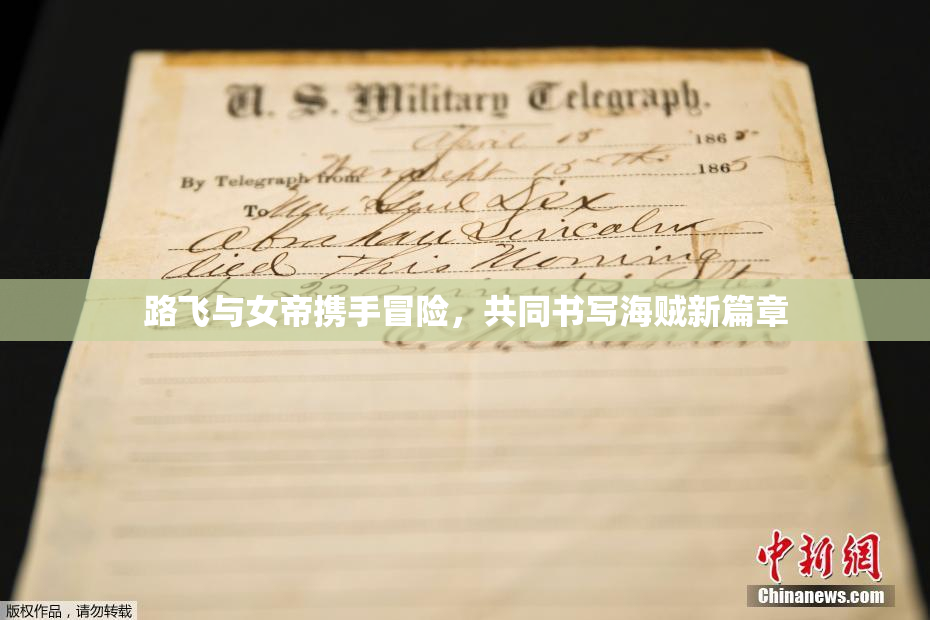 U. S. Military Telegraph.
April 15 1865
By Telegraph from War Dept 15th 1865
To Maj Genl Dix
Abraham Lincoln
died This Morning
at 22 minutes After
路飞与女帝携手冒险，共同书写海贼新篇章
E. M. Stanton
中新网
Chinanews.com
版权作品，请勿转载